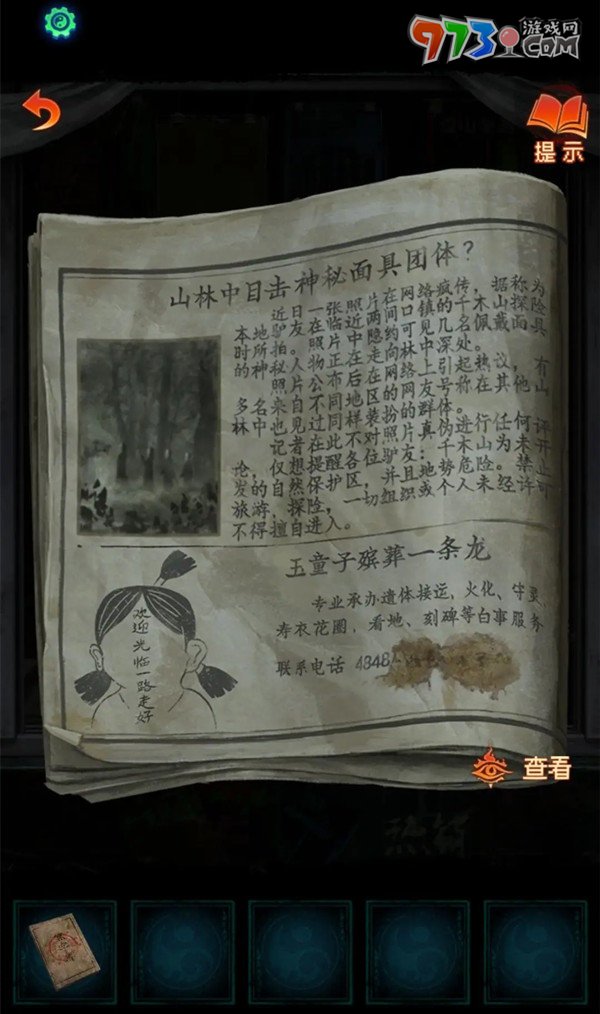 973游戏网.COM
提示
山林中目击神秘面具团体？
近日一张照片在网络疯传，据称为
本地驴友在临近两间口镇的千木山探险
时所拍。照片中隐约可见几名佩戴面具
的神秘人物正走向林中深处。
照片公布后在网络上引起热议，有
多名来自不同地区的网友号称在其他山
林中也见过同样装扮的群体。
记者在此不对照片真伪进行任何评
论，仅想提醒各位驴友：千木山为未开
发的自然保护区，并且地势危险。禁止
旅游、探险，一切组织或个人未经许可
不得擅自进入。
玉童子殡葬一条龙
专业承办遗体接运，火化、守灵、
寿衣花圈，看地、刻碑等白事服务
联系电话 4848
欢迎光临一路走好
查看